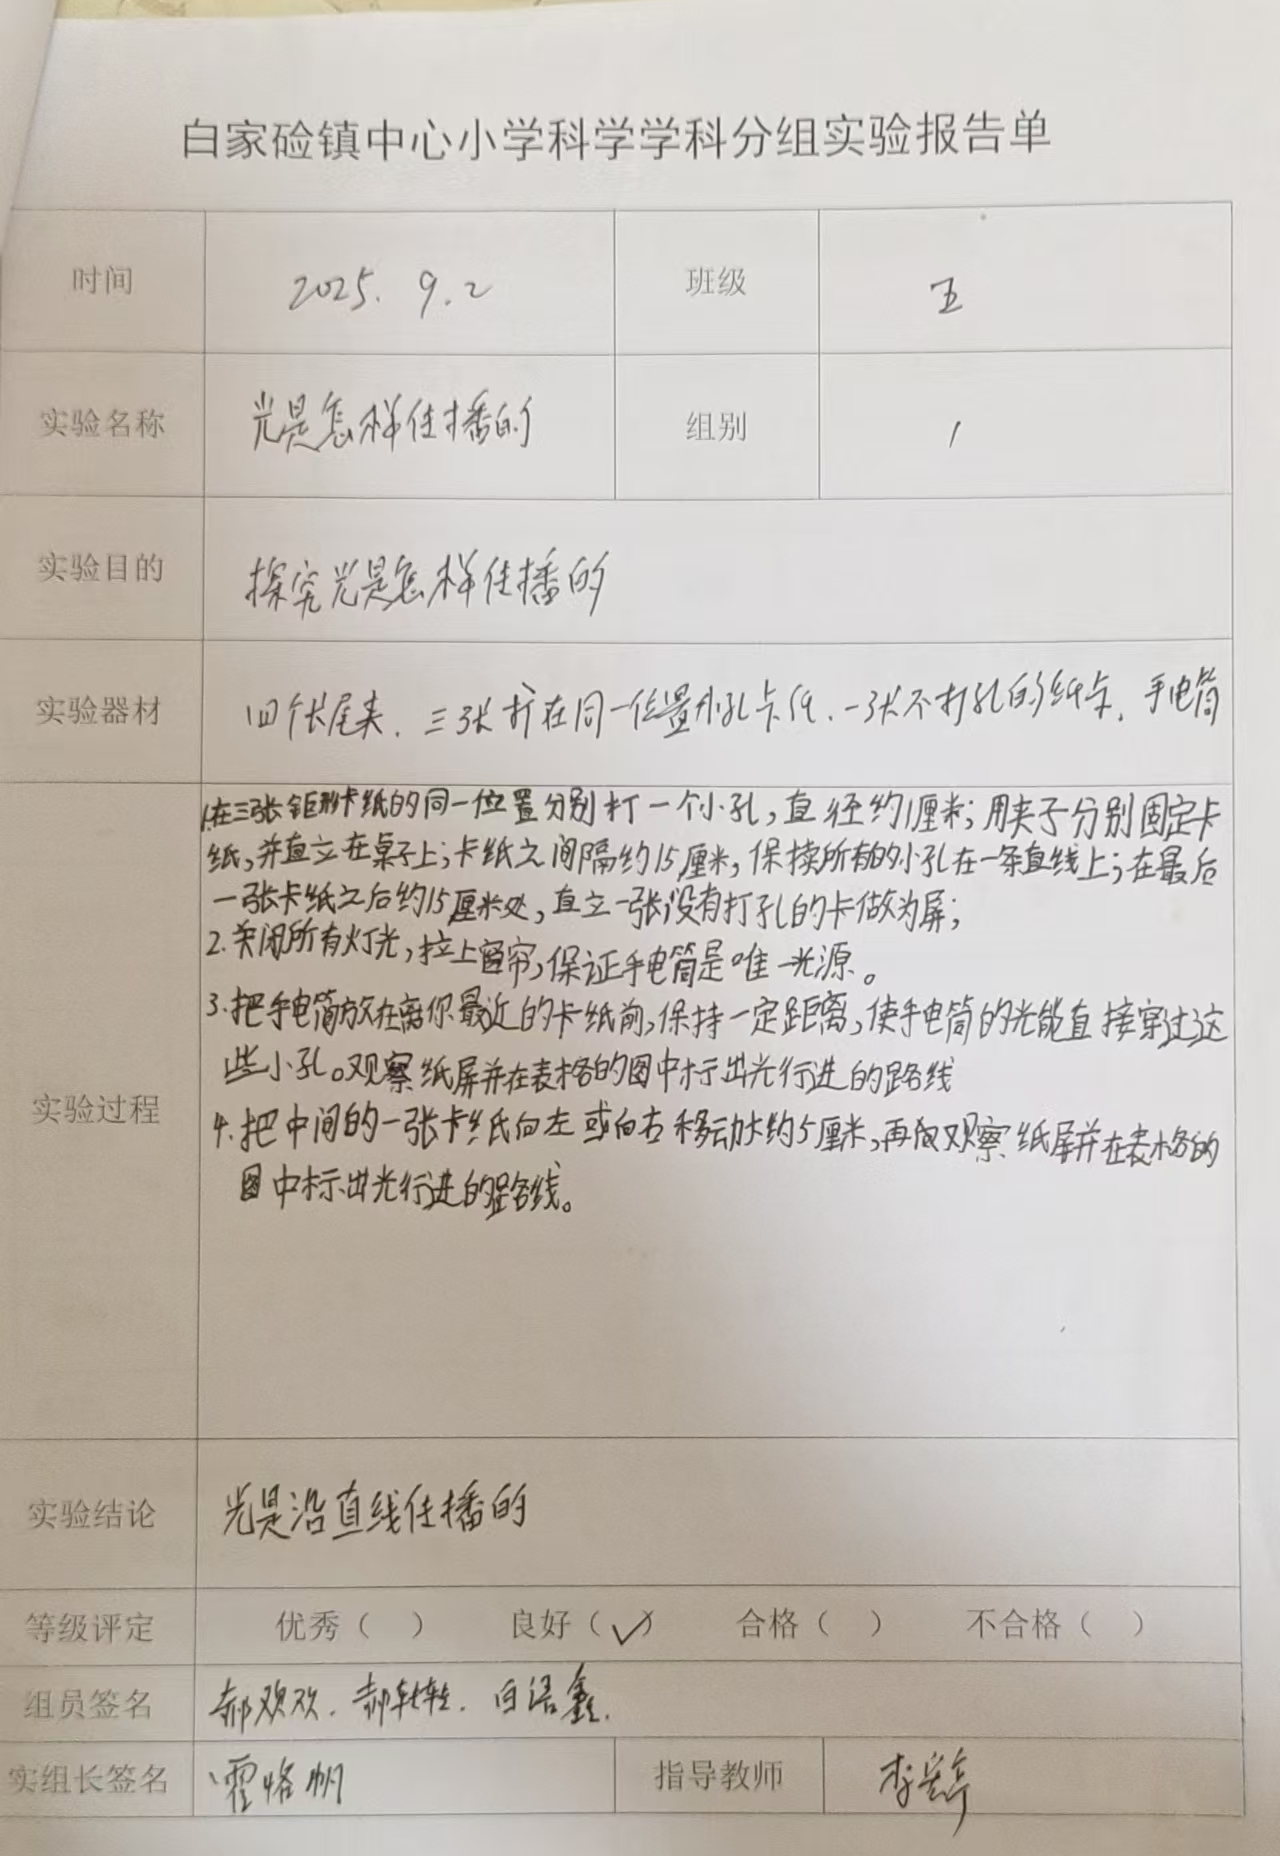 白家硷镇中心小学科学学科分组实验报告单
时间 2025. 9. 2 班级 五
实验名称 光是怎样传播的 组别 1
实验目的 探究光是怎样传播的
实验器材 四个长尾夹、三张打在同一位置小孔卡纸、一张不打孔的纸卡、手电筒
1.在三张钜形卡纸的同一位置分别打一个小孔,直径约1厘米;用夹子分别固定卡
纸,并直立在桌子上;卡纸之间隔约15厘米,保持所有的小孔在一条直线上;在最后
一张卡纸之后约15厘米处,直立一张没有打孔的卡做为屏;
2.关闭所有灯光,拉上窗帘,保证手电筒是唯一光源。
3.把手电筒放在离你最近的卡纸前,保持一定距离,使手电筒的光能直接穿过这
些小孔。观察纸屏并在表格的图中标出光行进的路线
实验过程
4.把中间的一张卡纸向左或向右移动大约5厘米,再次观察纸屏并在表格的
图中标出光行进的路线。
实验结论 光是沿直线传播的
等级评定 优秀( ) 良好(✓) 合格( ) 不合格( )
组员签名 郝欢欢、郝轶轶、白语鑫
实组长签名 霍恪帆 指导教师 李